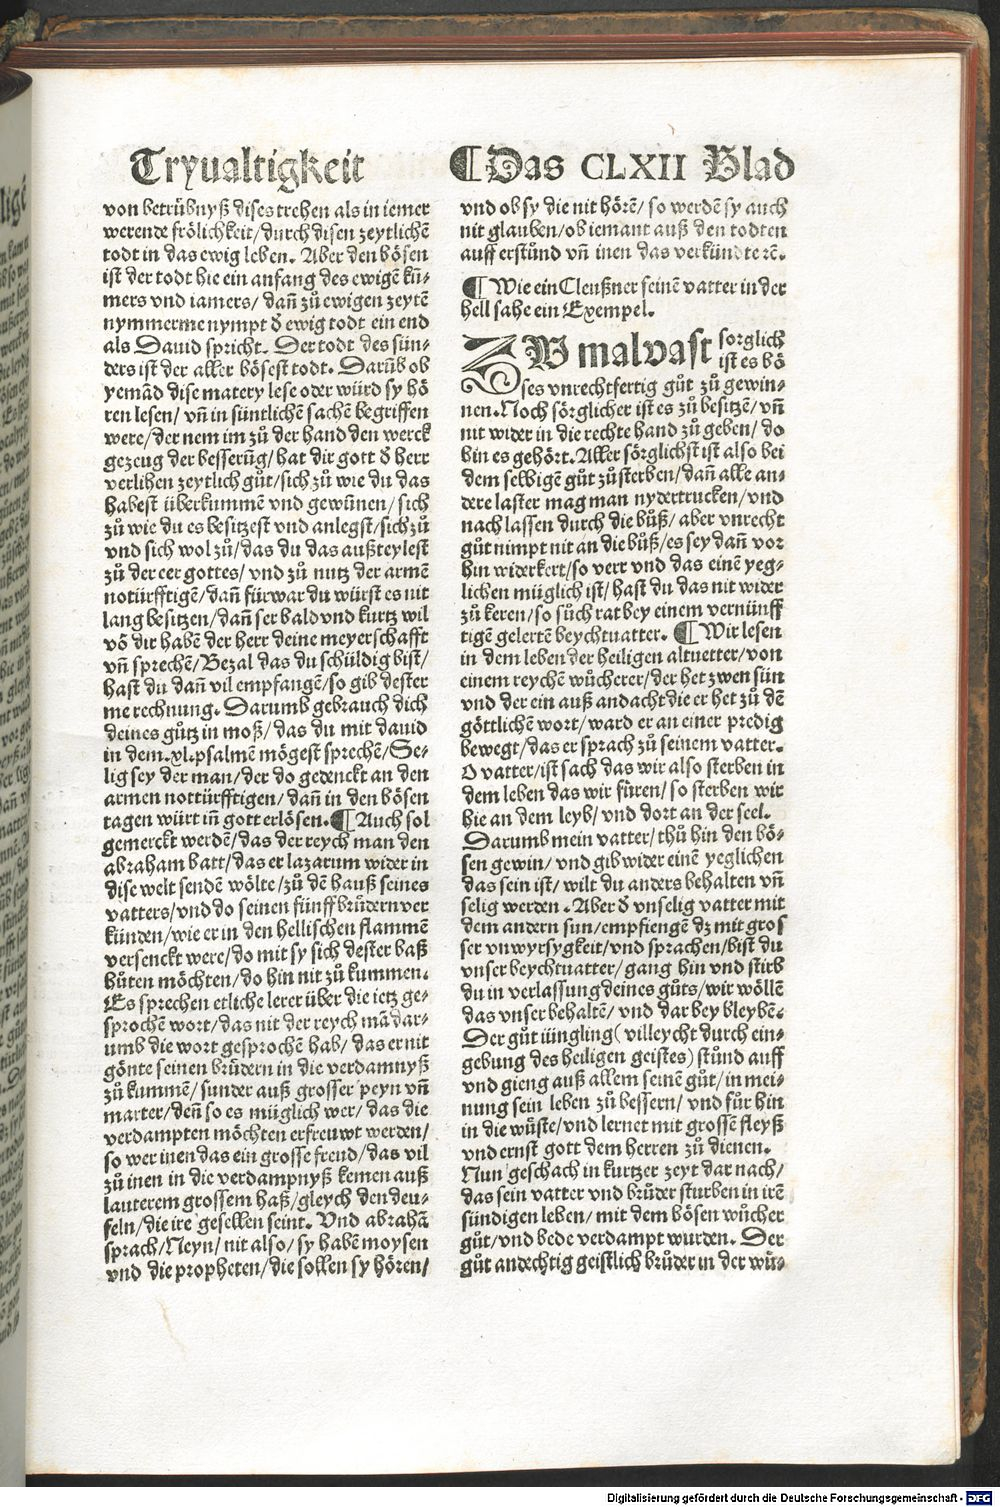 Tryualtigkeit
von betrůbnyß dises trehen als in iemer
werende frölichkeit/durch disen zeytlichē
todt in das ewig leben. Aber den bösen
ist der todt hie ein anfang des ewigē kū-
mers vnd iamers/ dañ zů ewigen zeytē
nymmerme nympt d̕ ewig todt ein end
als Dauid spricht. Der todt des sün-
ders ist der aller bösest todt. Darūb ob
yemād dise matery lese oder würd sy hö
ren lesen/ vñ in süntlichē sachē begriffen
were/der nem im zů der hand den werck
gezeug der besserūg/hat dir gott d̕ herr
verlihen zeytlich gůt/sich zů wie du das
habest überkummē vnd gewūnen/ sich
zů wie du es besitzest vnd anlegst/sich zů
vnd sich wol zů/das du das außteylest
zů der eer gottes/ vnd zů nutz der armē
notürfftigē/dañ fürwar du würst es nit
lang besitzen/dañ ser bald vnd kurtz wil
vō dir habē der herr deine meyerschafft
vñ sprechē/Bezal das du schüldig bist/
hast du dañ vil empfangē/so gib dester
me rechnung. Darumb gebrauch dich
deines gůtz in moß/das du mit dauid
in dem .xl. psalmē mögest sprechē/Se-
lig sey der man/der do gedenckt an den
armen nottürfftigen/ dañ in den bösen
tagen würt iñ gott erlösen. ¶ Auch sol
gemerckt werdē/das der reych man den
abraham batt/das er lazarum wider in
dise welt sendē wölte/zů dē hauß seines
vatters/vnd do seinen fünff brůdern ver
künden/wie er in den hellischen flammē
versenckt were/do mit sy sich dester baß
hůten möchten/do hin nit zů kummen.
Es sprechen etliche lerer über die ietz ge-
sprochē wort/das nit der reych mā dar-
umb die wort gesprochē hab/ das er nit
gönte seinen brůdern in die verdamnyß
zů kummē/sunder auß grosser peyn vñ
marter/deñ so es müglich wer/ das die
verdampten möchten erfreuwt werden/
so wer inen das ein grosse freud/das vil
zů inen in die verdampnyß kemen auß
lauterem grossem haß/gleych den deu-
feln/die ire gesellen seint. Vnd abrahā
sprach/Neyn/ nit also/sy habē moysen
vnd die propheten/die sollen sy hören/
¶Das CLXII Blad
vnd ob sy die nit hörē/ so werdē sy auch
nit glauben/ob iemant auß den todten
auff erstůnd vñ inen das verkündte rē.
¶ Wie ein Cleußner seinē vatter in der
hell sahe ein Exempel.
ZW mal vast sorglich
ist es bö
ses vnrechtfertig gůt zů gewin-
nen. Noch sörglicher ist es zů besitzē/ vñ
nit wider in die rechte hand zů geben/ do
hin es gehört. Aller sörglichst ist also bei
dem selbigē gůt zů sterben/dañ alle an-
dere laster mag man nydertrucken/vnd
nach lassen durch die bůß/ aber vnrecht
gůt nimpt nit an die bůß/es sey dañ vor
hin widerkert/so verr vnd das einē yeg-
lichen müglich ist/ hast du das nit wider
zů keren/so sůch rat bey einem vernünff
tigē gelertē beychtuatter. ¶ Wir lesen
in dem leben der heiligen altuetter/von
einem reychē wůcherer/der het zwen sün
vnd der ein auß andacht die er het zů dē
göttlichen wort/ward er an einer predig
bewegt/das er sprach zů seinem vatter.
O vatter/ist sach das wir also sterben in
dem leben das wir füren/so sterben wir
hie an dem leyb/ vnd dort an der seel.
Darumb mein vatter/ thů hin den bö-
sen gewin/ vnd gib wider einē yeglichen
das sein ist/ wilt du anders behalten vñ
selig werden. Aber d̕ vnselig vatter mit
dem andern sun/empfiengē dz mit gros
ser vnwyrsygkeit/vnd sprachen/bist du
vnser beychtuatter/gang hin vnd stirb
du in verlassung deines gůts/wir wöllē
das vnser behaltē/ vnd dar bey bleybē.
Der gůt iüngling( villeycht durch ein-
gebung des heiligen geistes) stůnd auff
vnd gieng auß allem seinē gůt/in mei-
nung sein leben zů bessern/ vnd fůr hin
in die wůste/vnd lernet mit grossē fleyß
vnd ernst gott dem herren zů dienen.
Nun geschach in kurtzer zeyt dar nach/
das sein vatter vnd brůder sturben in irē
sündigen leben/ mit dem bösen wůcher
gůt/vnd bede verdampt wurden. Der
gůt andechtig geistlich brůder in der wů-
Digitalisierung gefördert durch die Deutsche Forschungsgemeinschaft - DFG